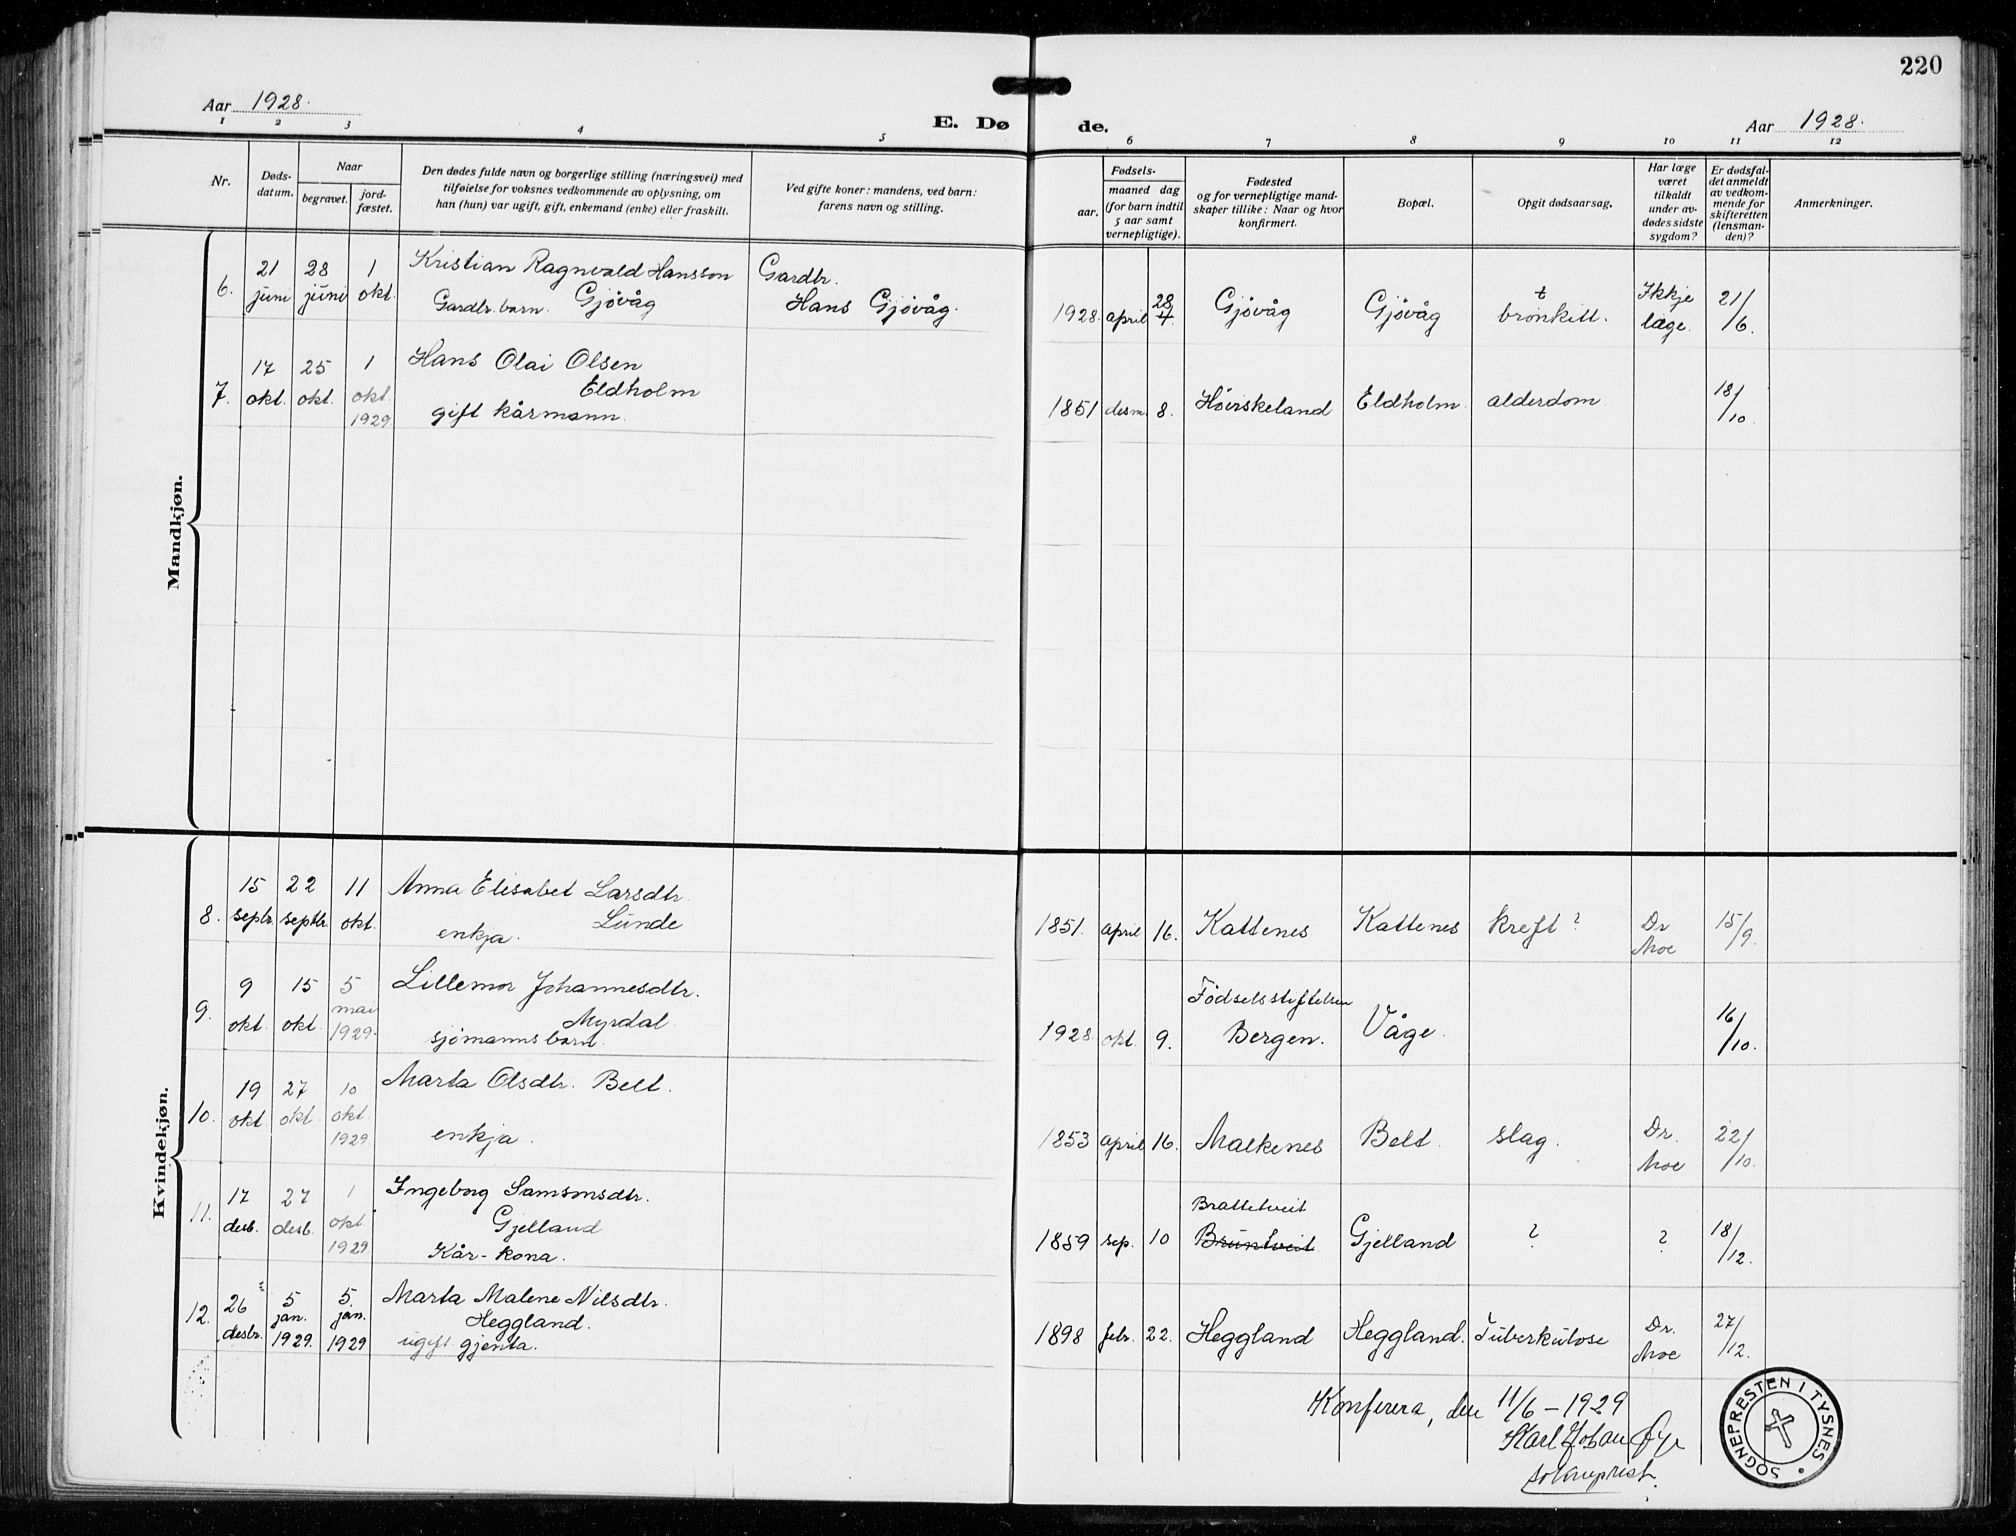 220
Aar 1928.
Aar 1928.
E. Dø
de.
1 2 3 4 5 6 7 8 9 10 11 12
Nr.
Døds-
datum.
Naar
begravet.
jord-
fæstet.
Den dødes fulde navn og borgerlige stilling (næringsvei) med
tilføielse for voksnes vedkommende av oplysning, om
han (hun) var ugift, gift, enkemand (enke) eller fraskilt.
Ved gifte koner: mandens, ved barn:
farens navn og stilling.
aar.
Fødsels-
maaned dag
(for barn indtil
5 aar samt
vernepligtige).
Fødested
og for vernepligtige mand-
skaper tillike: Naar og hvor
konfirmert.
Bopæl.
Opgit dødsaarsag.
Har læge
været
tilkaldt
under av-
dødes sidste
sygdom?
Er dødsfal-
det anmeldt
av vedkom-
mende for
skifteretten
(lensman-
den)?
Anmerkninger.
Mandkjøn.
6.
21
juni
28
juni
1
okt.
Kristian Ragnvald Hansson
Gjövåg
Gardbr. barn.
Gardbr.
Hans Gjövåg.
1928. april 28/4.
Gjövåg
Gjövåg
t
bronkitt.
Ikkje
læge.
21/6.
7.
17
okt.
25
okt.
1
okt.
1929.
Hans Olai Olsen
Eldholm
gift kårmann.
1851 desm. 8.
Höviskeland
Eldholm.
alderdom
18/10.
Kvindekjøn.
8.
15
septr.
22
septbr.
11
okt.
Anna Elisabet Larsdtr.
Lunde
enkja.
1851. april 16.
Kattenes
Kattenes
kreft ?
Dr
Moe
15/9.
9.
9
okt.
15
okt.
5
mai
1929.
Lillemor Johannesdtr.
Myrdal.
sjömannsbarn.
1928. okt. 9.
Födselsstiftelsen
Bergen.
Våge.
16/10.
10.
19
okt.
27
okt.
10
okt.
1929.
Marta Olsdtr. Belt.
enkja.
1853 april 16.
Malkenes
Belt.
slag.
Dr.
Moe
22/10.
11.
17
desb.
27
desb.
1
okt
1929
Ingeborg Samsonsdtr.
Gjelland
Kår-kona.
1859 sep. 10
Brattetveit
Bruntveit
Gjelland
?
?
18/12.
12.
26
desbr.
5
jan.
1929.
5.
jan.
1929
Marta Malene Nilsdtr.
Heggland.
ugift gjenta.
1898 febr. 22.
Heggland
Heggland.
Tuberkulose
Dr.
Moe
27/12.
Konferera, den 11/6-1929
Karl Johan Øye
sokneprest.
SOGNEPRESTEN I TYSNES